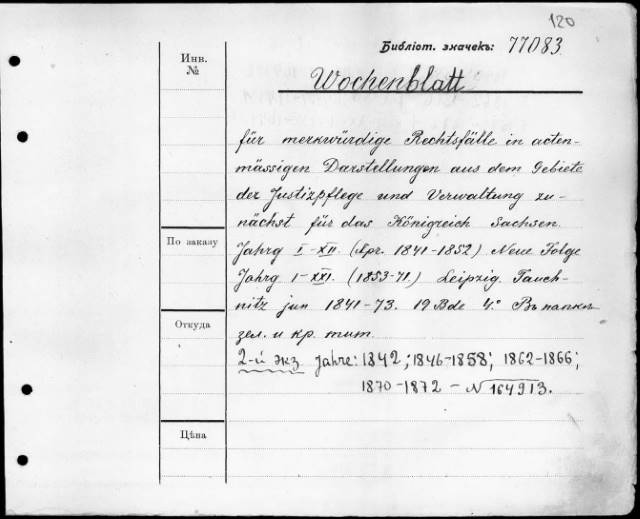 120
Библіот. значекъ: 77083
Инв.
№
Wochenblatt
für merkwürdige Rechtsfälle in acten-
mässigen Darstellungen aus dem Gebiete
der Justizpflege und Verwaltung zu-
nächst für das Königreich Sachsen.
По заказу
Jahrg I-XII. (Apr. 1841-1852) Neue Folge
Jahrg I-XXI. (1853-71.) Leipzig. Tauch-
nitz jun 1841-73. 19 Bde 4.° Въ папкѣ
Откуда
зел. и кр. тит.
2-й экз Jahre: 1842; 1846-1858; 1862-1866;
1870-1872 - N 164913.
Цѣна